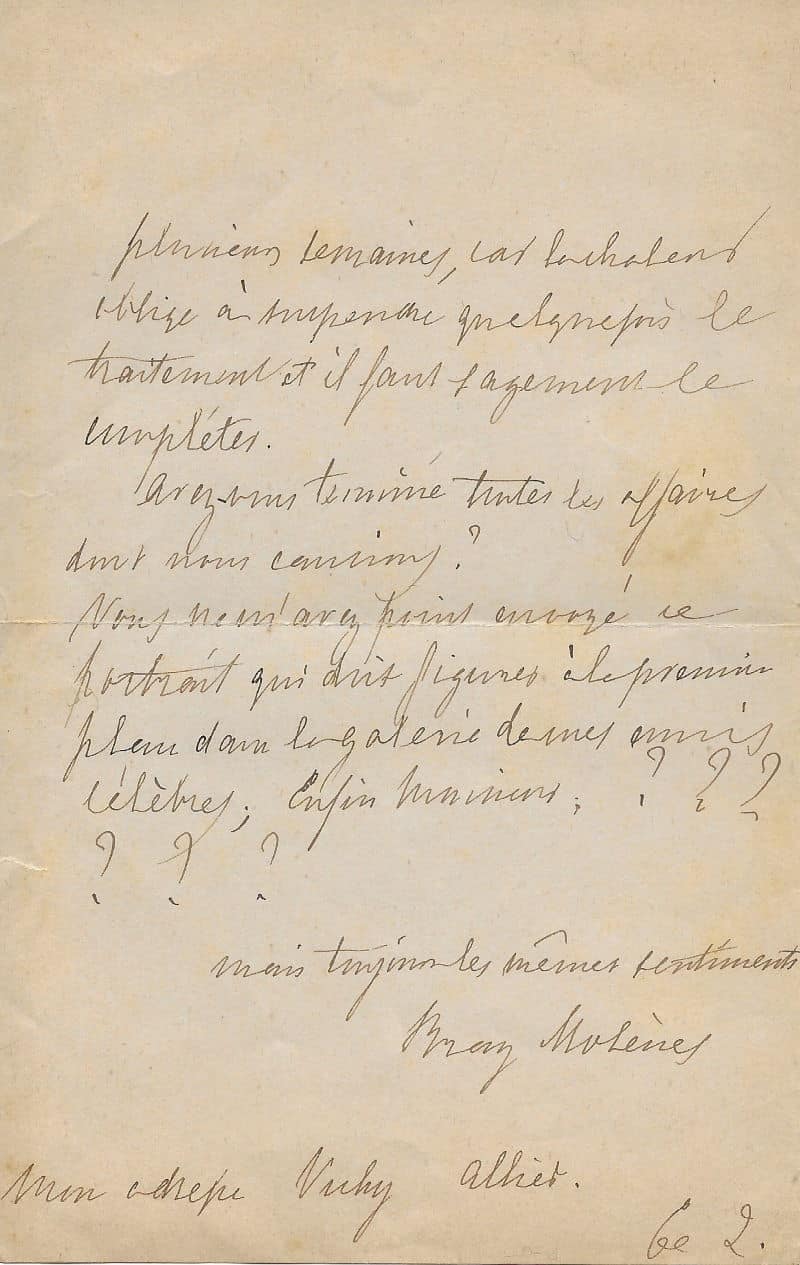 plusieurs semaines, car la chaleur
oblige à suspendre quelquefois le
traitement et il faut sagement le
compléter.
Avez-vous terminé toutes les affaires
dont nous causions?
Vous ne m'avez point envoyé ce
portrait qui doit figurer à le premier
plan dans la galerie de mes amis
célèbres; Enfin Monsieur; ? ? ?
? ? ?
mais toujours les mêmes sentiments
Bray Molènes
Mon adresse Vichy Allier.
2.